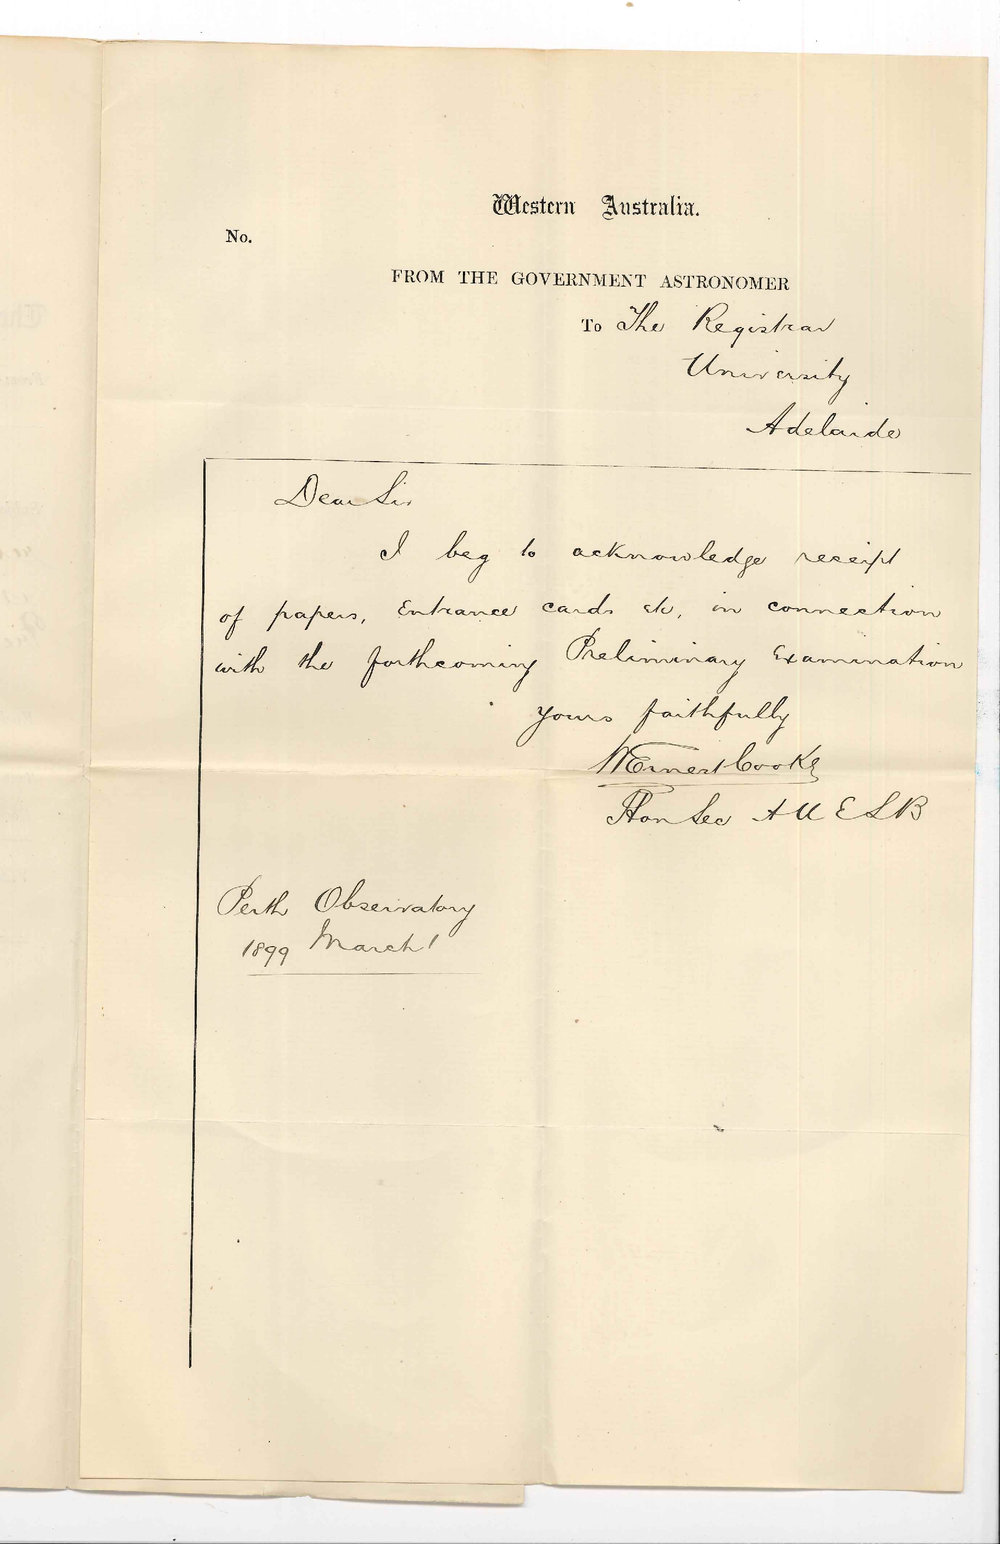 Western Australia.
No.
FROM THE GOVERNMENT ASTRONOMER
To The Registrar
University
Adelaide
Dear Sir
I beg to acknowledge receipt
of papers, Entrance cards etc, in connection
with the forthcoming Preliminary Examination
Yours faithfully
W Ernest Cooke
Hon Sec A U E L B
Perth Observatory
1899 March 1